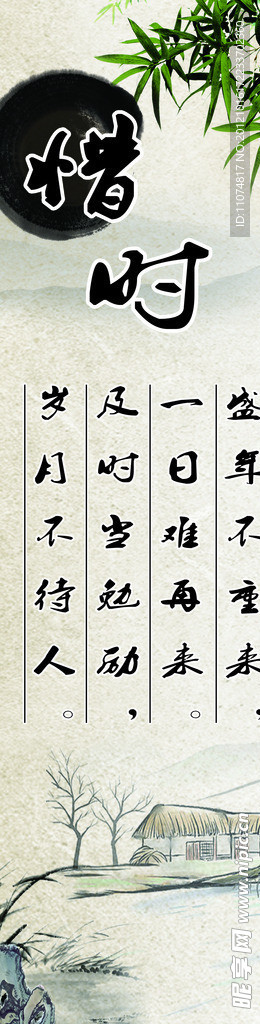 惜时
盛年不重来，
一日难再来。
及时当勉励，
岁月不待人。
昵享网 www.nipic.cn